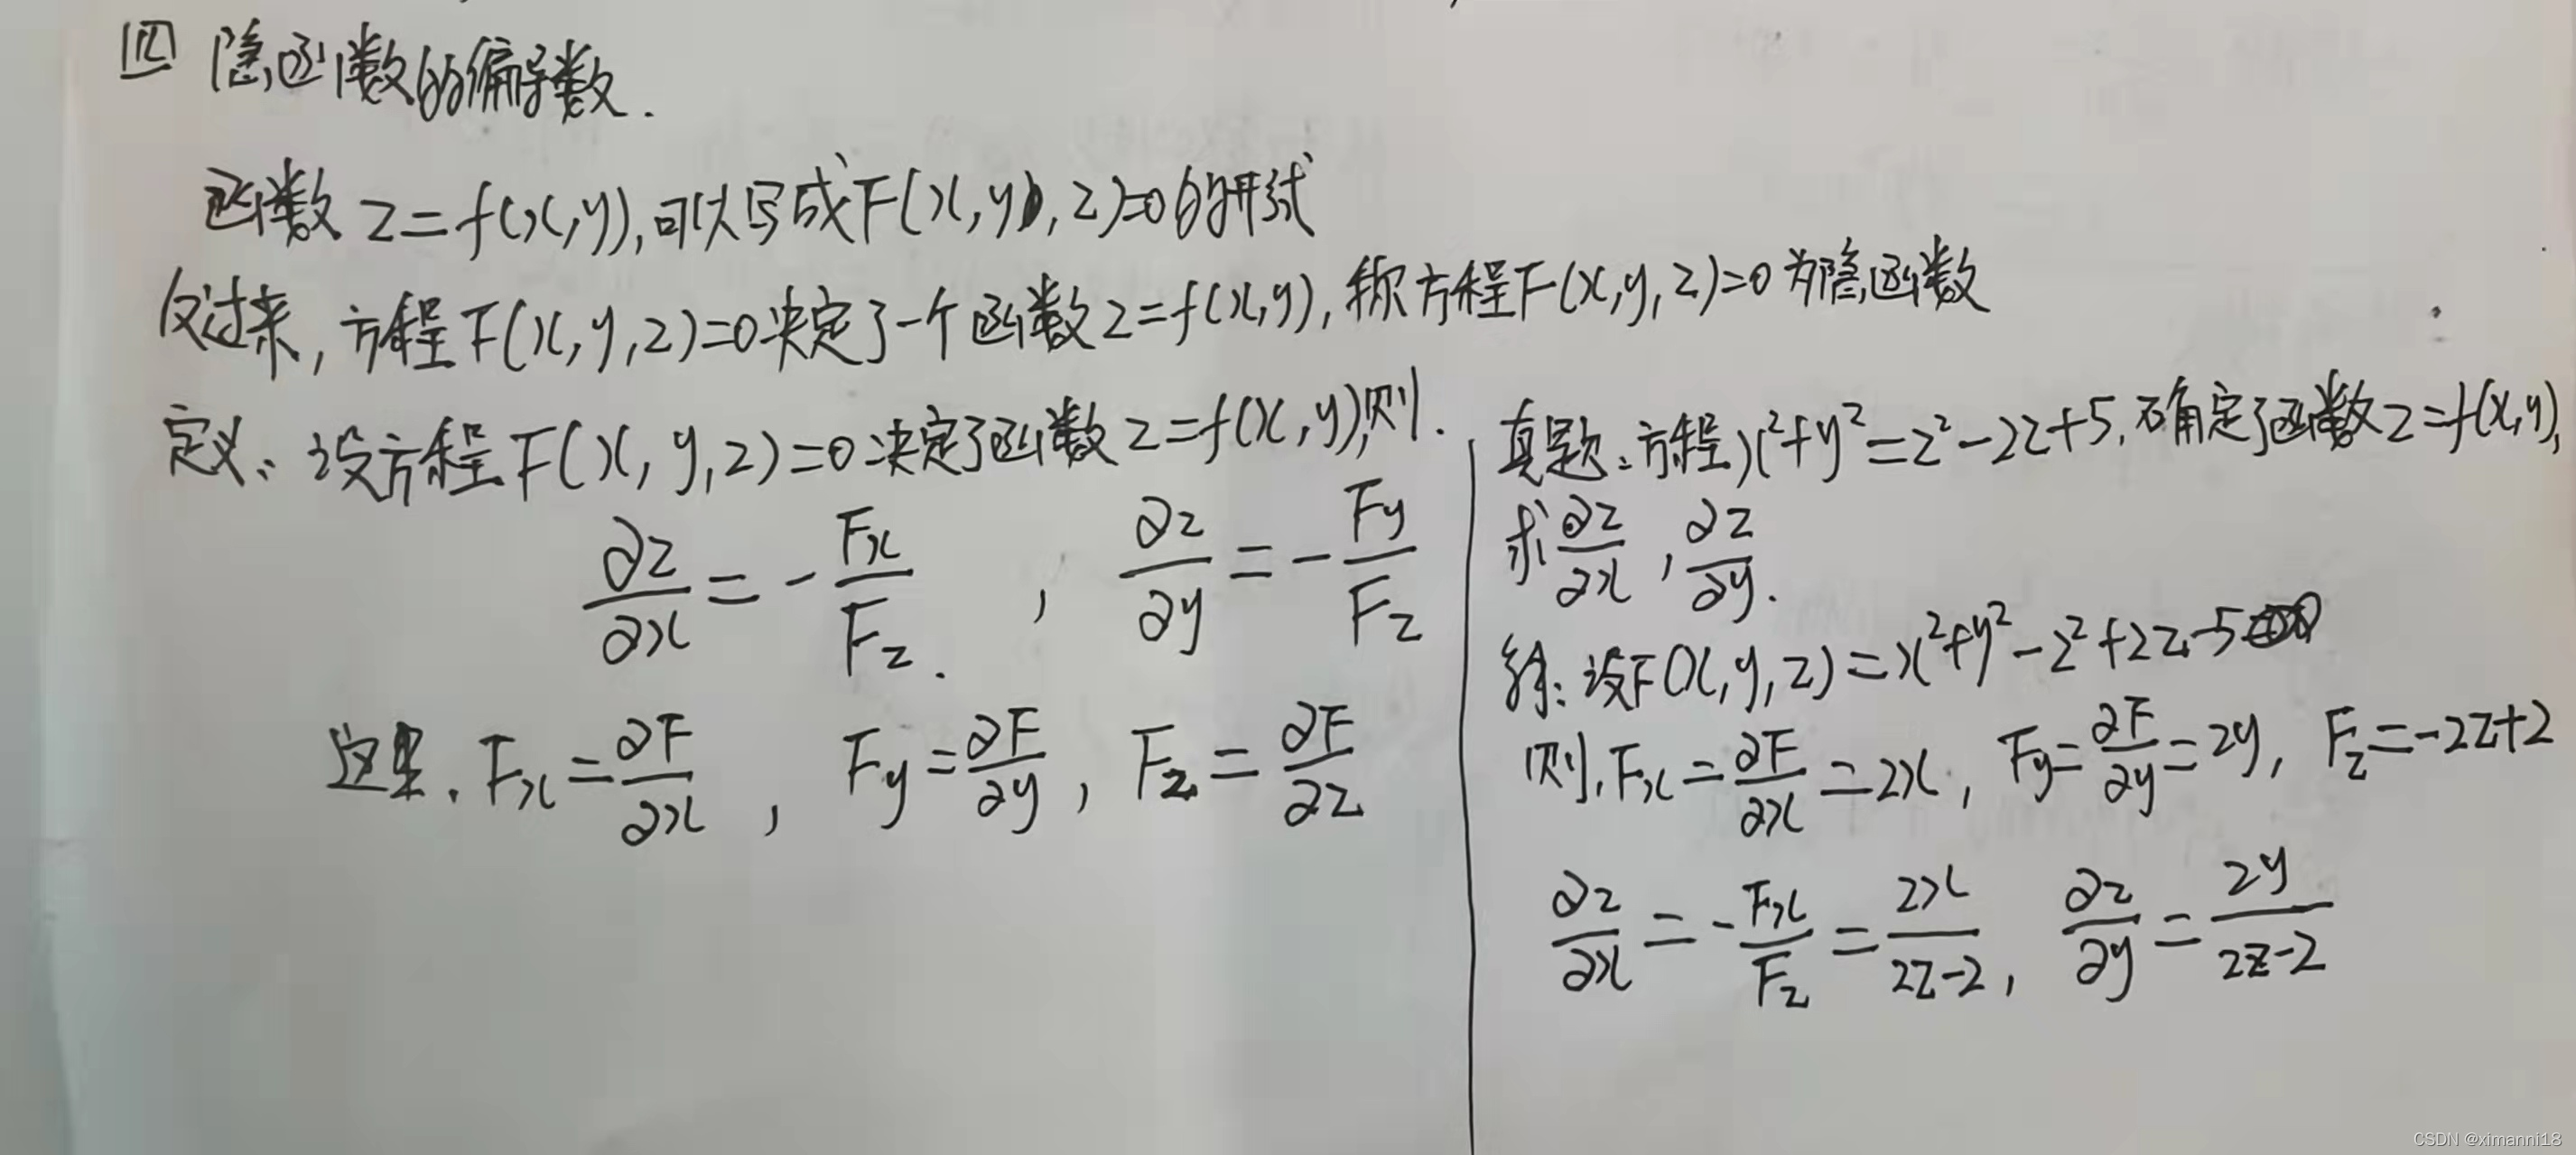 四 隐函数的偏导数.
函数 z=f(x,y),可以写成F(x,y,z)=0的形式
反过来,方程F(x,y,z)=0决定了一个函数z=f(x,y),称方程F(x,y,z)=0为隐函数
定义:设方程F(x,y,z)=0决定了函数z=f(x,y),则.
∂z/∂x = -Fx/Fz. , ∂z/∂y = -Fy/Fz
这里. Fx=∂F/∂x , Fy=∂F/∂y , Fz=∂F/∂z
真题:方程x²+y²=z²-2z+5,确定了函数z=f(x,y),
求∂z/∂x , ∂z/∂y.
解:设F(x,y,z)=x²+y²-z²+2z-5
则,Fx=∂F/∂x=2x, Fy=∂F/∂y=2y, Fz=-2z+2
∂z/∂x=-Fx/Fz=2x/2z-2, ∂z/∂y=2y/2z-2
CSDN @ximanni18